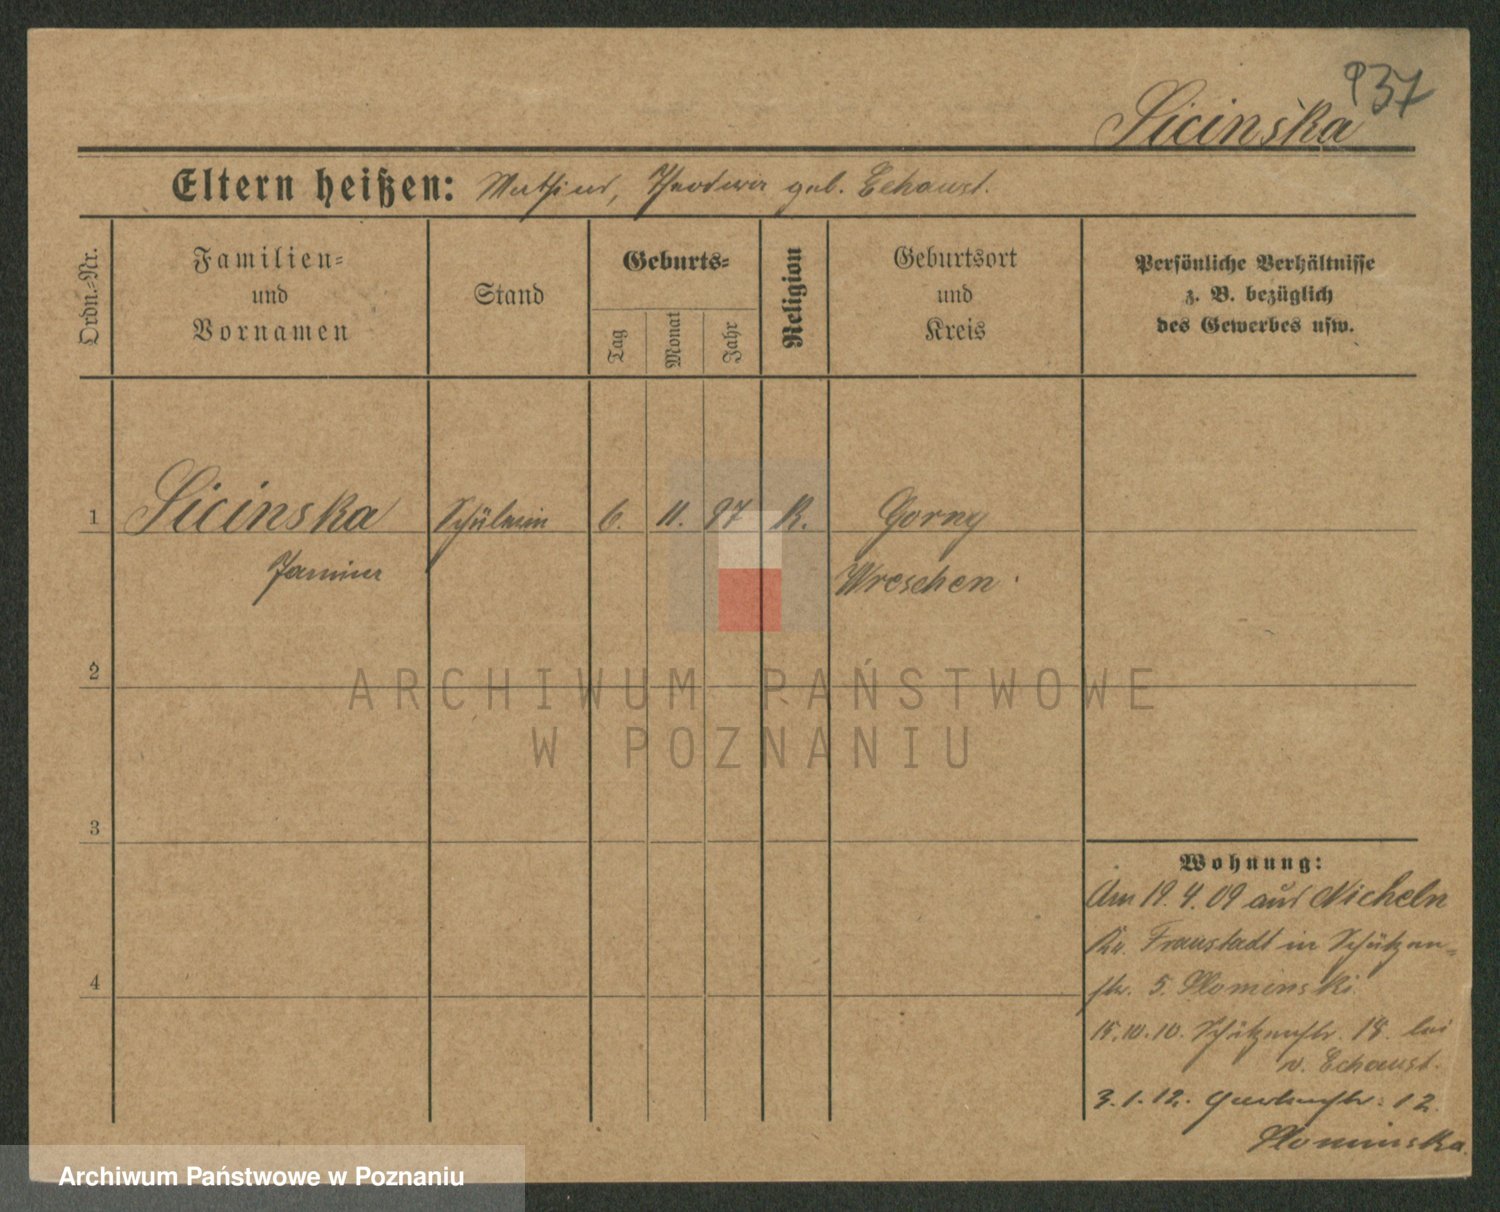 937
Sicinska
Eltern heißen: Mathias, Theodosia geb. Echaust.
Ordn.-Nr.
Familien-
und
Vornamen
Stand
Geburts-
Tag
Monat
Jahr
Religion
Geburtsort
und
Kreis
Persönliche Verhältnisse
z. B. bezüglich
des Gewerbes usw.
1 Sicinska Schülerin 6. 11. 97 K. Gorny
Janina Wreschen.
2
ARCHIWUM PAŃSTWOWE
W POZNANIU
3
Wohnung:
Am 19.4.09 aus Nicheln
Kr. Fraustadt in Schützen-
4
str. 5. Slominski.
15.10.10. Schützenstr. 18. bei
v. Echaust.
3.1.12. Gartenstr. 12.
Slominska.
Archiwum Państwowe w Poznaniu